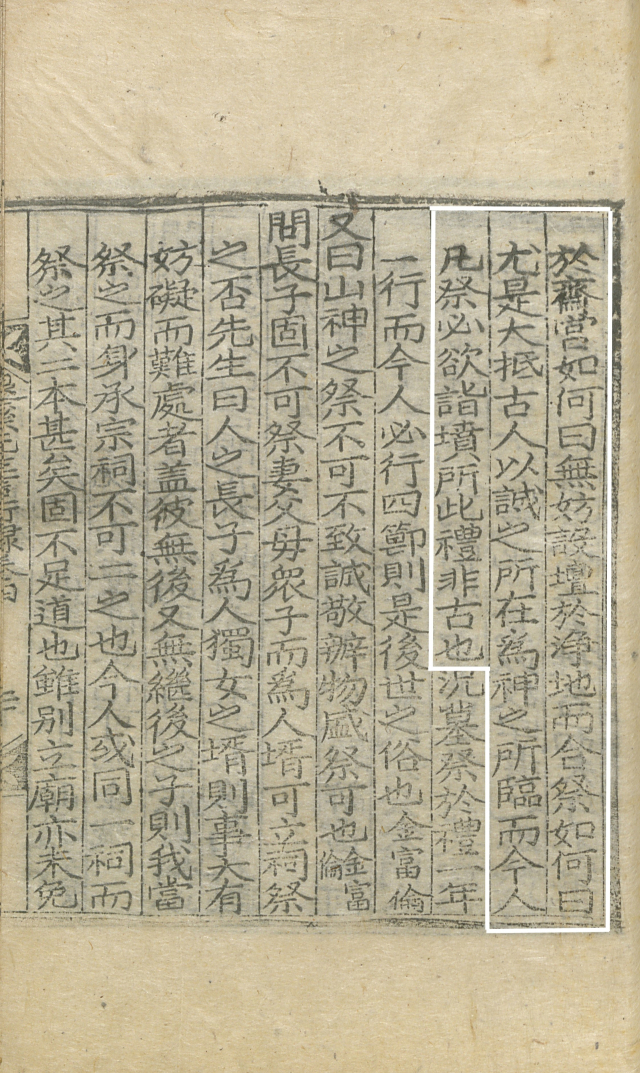 於齋宮如何曰無妨設壇於淨地而合祭如何曰
尤是大抵古人以誠之所在爲神之所臨而今人
凡祭必欲詣墳所此禮非古也況墓祭於禮一年
一行而今人必行四節則是後世之俗也金富倫
又曰山神之祭不可不致誠敬辦物盛祭可也金富倫
問長子固不可祭妻父母衆子而爲人壻可立祠祭
之否先生曰人之長子爲人獨女之壻則事大有
妨礙而難處者盖彼無後又無繼後之子則我當
祭之而身承宗祠不可二之也今人或同一祠而
祭之其二本甚矣固不足道也雖別立廟亦未免
言行錄卷四